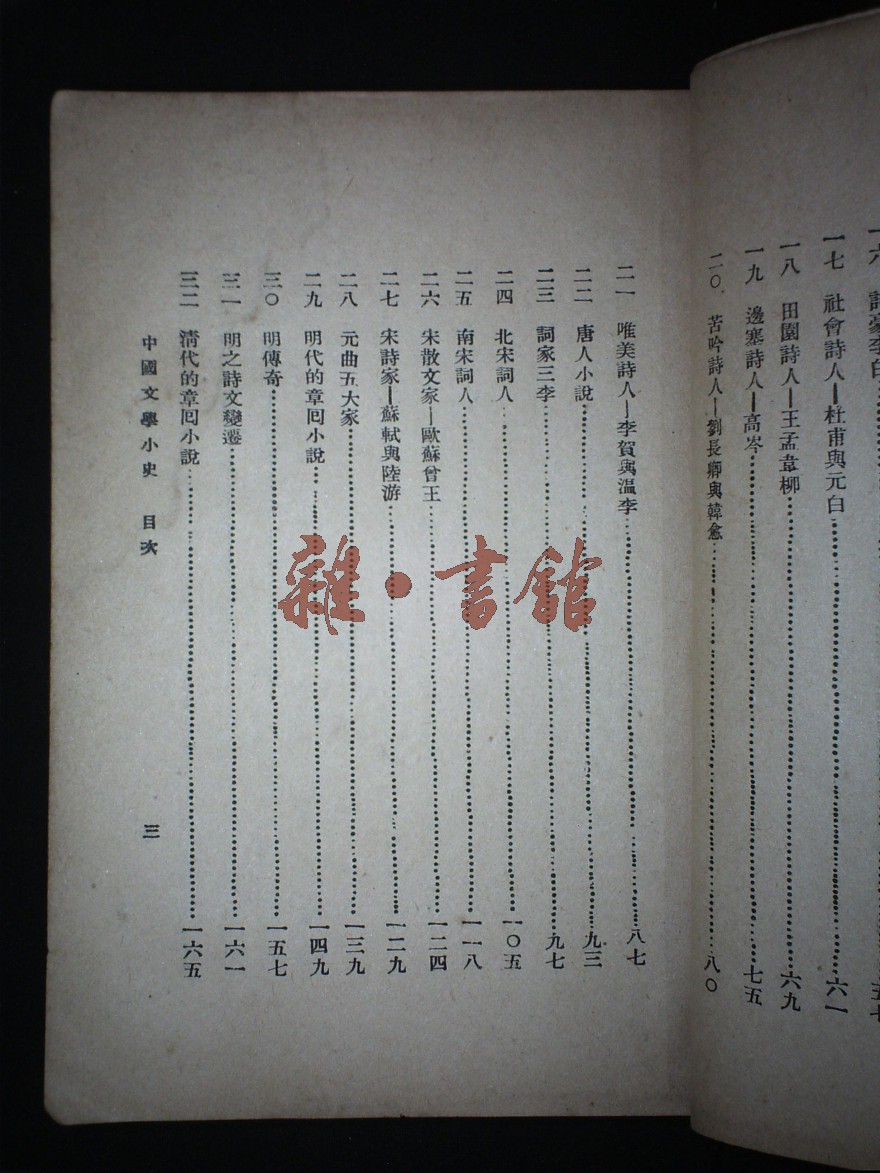 一六 詩豪李白
一七 社會詩人—杜甫與元白……六一
一八 田園詩人—王孟韋柳……六九
一九 邊塞詩人—高岑……七五
二〇 苦吟詩人—劉長卿與韓愈……八〇
二一 唯美詩人—李賀與溫李……八七
二二 唐人小說……九三
二三 詞家三李……九七
二四 北宋詞人……一〇五
二五 南宋詞人……一一八
二六 宋散文家—歐蘇曾王……一二四
二七 宋詩家—蘇軾與陸游……一二九
二八 元曲五大家……一三九
二九 明代的章囘小說……一四九
三〇 明傳奇……一五七
三一 明之詩文變遷……一六一
三二 淸代的章囘小說……一六五
中國文學小史 目次 三
雜·書館